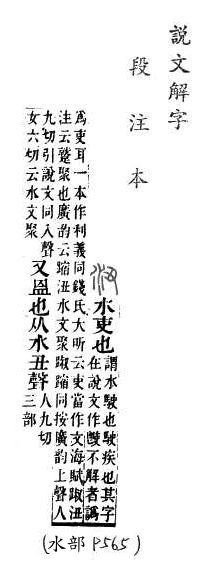 說文解字
段注本
沑
水吏也
謂水駛也駛疾也其字
在說文作不解者譌
爲吏耳一本作利義同錢氏大昕云吏當作文海賦踧沑
注云蹙聚也廣韵云蹜沑水文聚踧蹜同按廣韵上聲人
九切引說文同入聲
女六切云水文聚
又𥁕也从水丑聲
人九切
三部
(水部 P565)